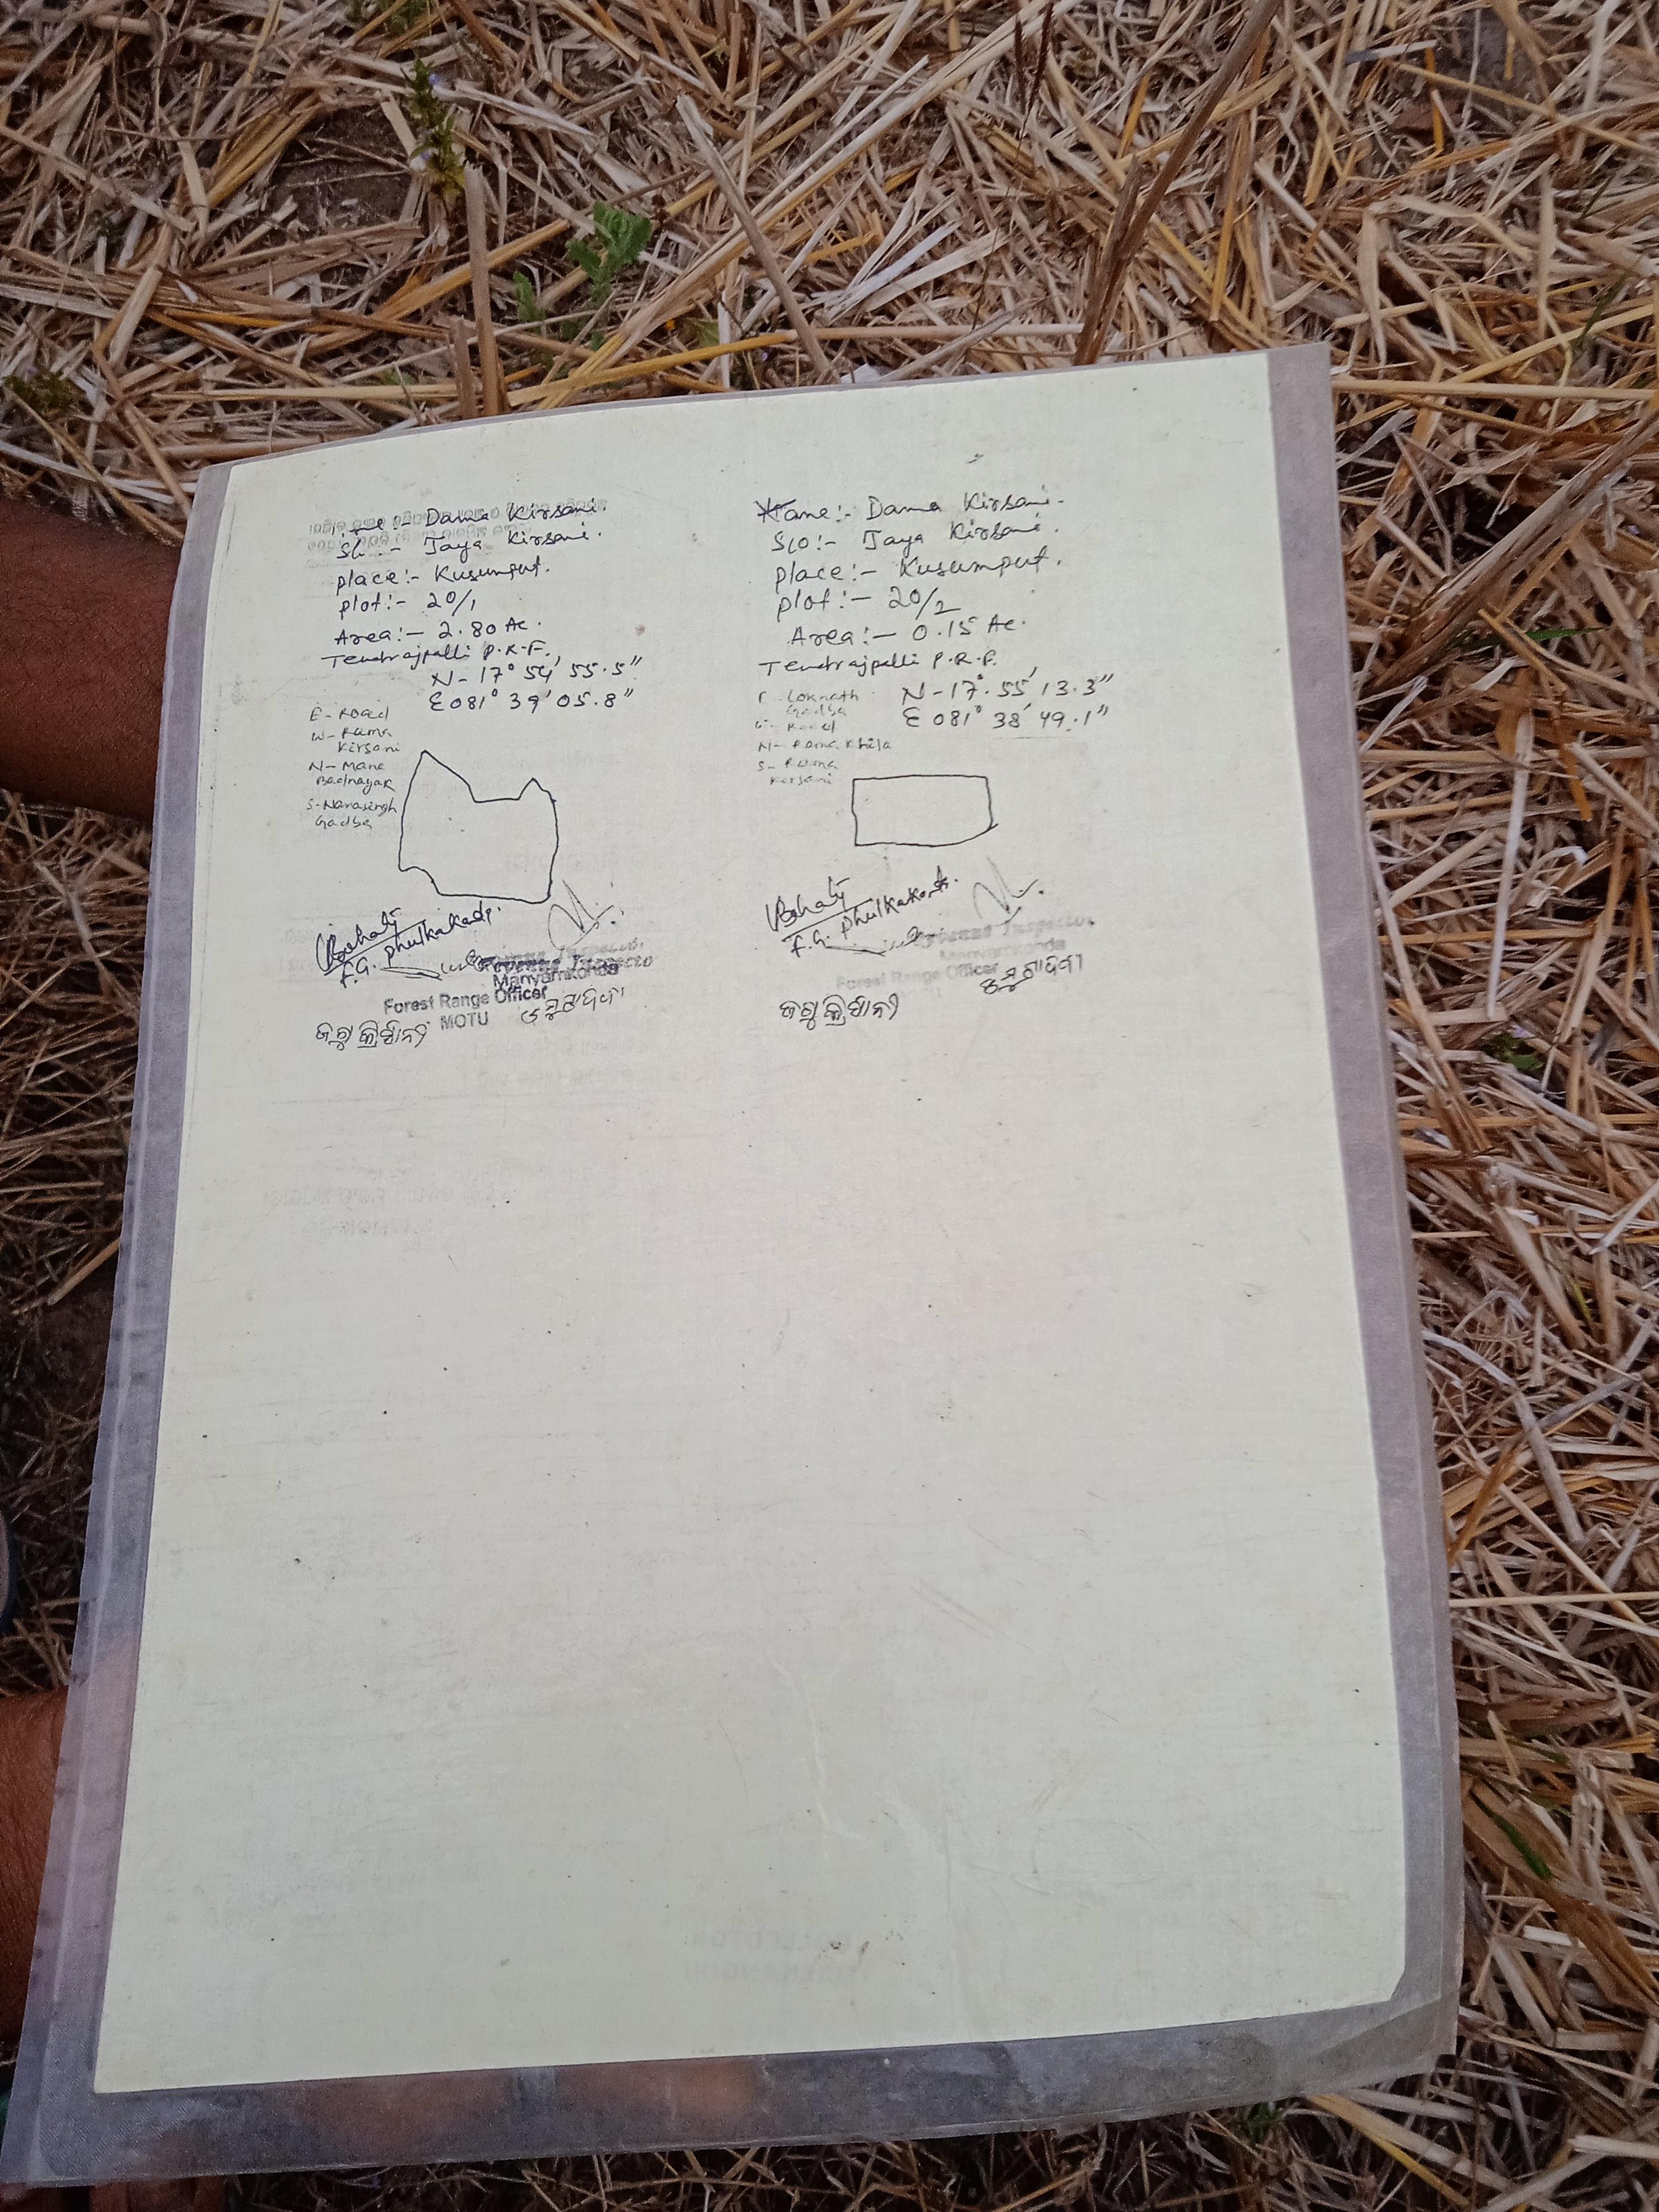 Dama Kirsani.
S/o :- Jaya Kirsani.
place:- Kusumput.
plot:- 20/1
Area:- 2.80 Ac.
Tendrajpalli P.R.F.
N- 17° 54' 55.5"
E 081° 39' 05.8"
E- Road
W- Rama
Kirsani
N- Mane
Badnayak
S- Narasingh
Gadba
F.G. Phulkakadi.
Revenue Inspector
Manyamkonda
Forest Range Officer
MOTU
ଜଗୁ କ୍ରିର୍ଷାନୀ
Name:- Dama Kirsani.
S/o:- Jaya Kirsani.
place:- Kusumput.
plot:- 20/2
Area:- 0.15 Ac.
Tendrajpalli P.R.F.
N- 17° 55' 13.3"
E 081° 38' 49.1"
Loknath
Gadba
Road
N- Rama Khila
S- Rama
Kirsani
F.G. Phulkakadi.
Revenue Inspector
Manyamkonda
Forest Range Officer
ଜଗୁ କ୍ରିର୍ଷାନୀ